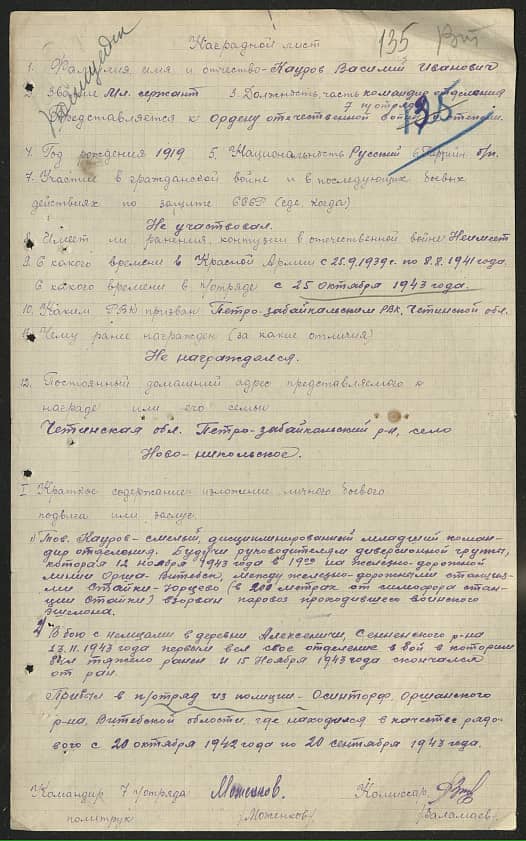 Наградной лист
135
1. Фамилия, имя и отчество – Кауров Василий Иванович
2. Звание Мл. сержант 3. Должность, часть командир отделения
7 п/отряда
Представляется к ордену отечественной войны степени.
4. Год рождения 1919 5. Национальность Русский 6. Партийн. б/п.
7. Участие в гражданской войне и в последующих боевых
действиях по защите СССР (где, когда)
Не участвовал.
8. Имеет ли ранения, контузии в отечественной войне Неимеет
9. С какого времени в Красной Армии с 25.9.1939 г. по 8.8.1941 года.
С какого времени в п/отряде с 25 октября 1943 года.
10. Каким РВК призван Петро-забайкальским РВК, Четинской обл.
11. Чему ранее награжден (за какие отличия)
Не награждался.
12. Постоянный домашний адрес представляемого к
награде или его семьи
Четинская обл. Петро-забайкальский р-н, село
Ново-никольское.
I Краткое содержание изложение личного боевого
подвига или заслуг.
1) Тов. Кауров – смелый, дисциплинированный младший коман-
дир отделения. Будучи руководителям диверсионной группы,
которая 12 ноября 1943 года в 19 00 на железно-дорожной
линии Орша-Витебск, между железно-дорожными станция-
ми Стайки-Юрцево (в 200 метрах от симофора стан-
ции Стайки) взорван паровоз проходившего воинского
эшелона.
2) В бою с немцами в деревни Алексеничи, Сенненского р-на
13.11.1943 года первый вел свое отделение в бой в котором
был тяжело ранен и 15 Ноября 1943 года скончался
от ран.
Прибыл в п/отряд из полиции – Осинторф, Оршанского
р-на, Витебской области, где находился в качестве рядо-
вого с 20 октября 1942 года по 20 сентября 1943 года.
Командир 7 п/отряда Моженков. Комиссар
политрук /Моженков/ /Варламаев/